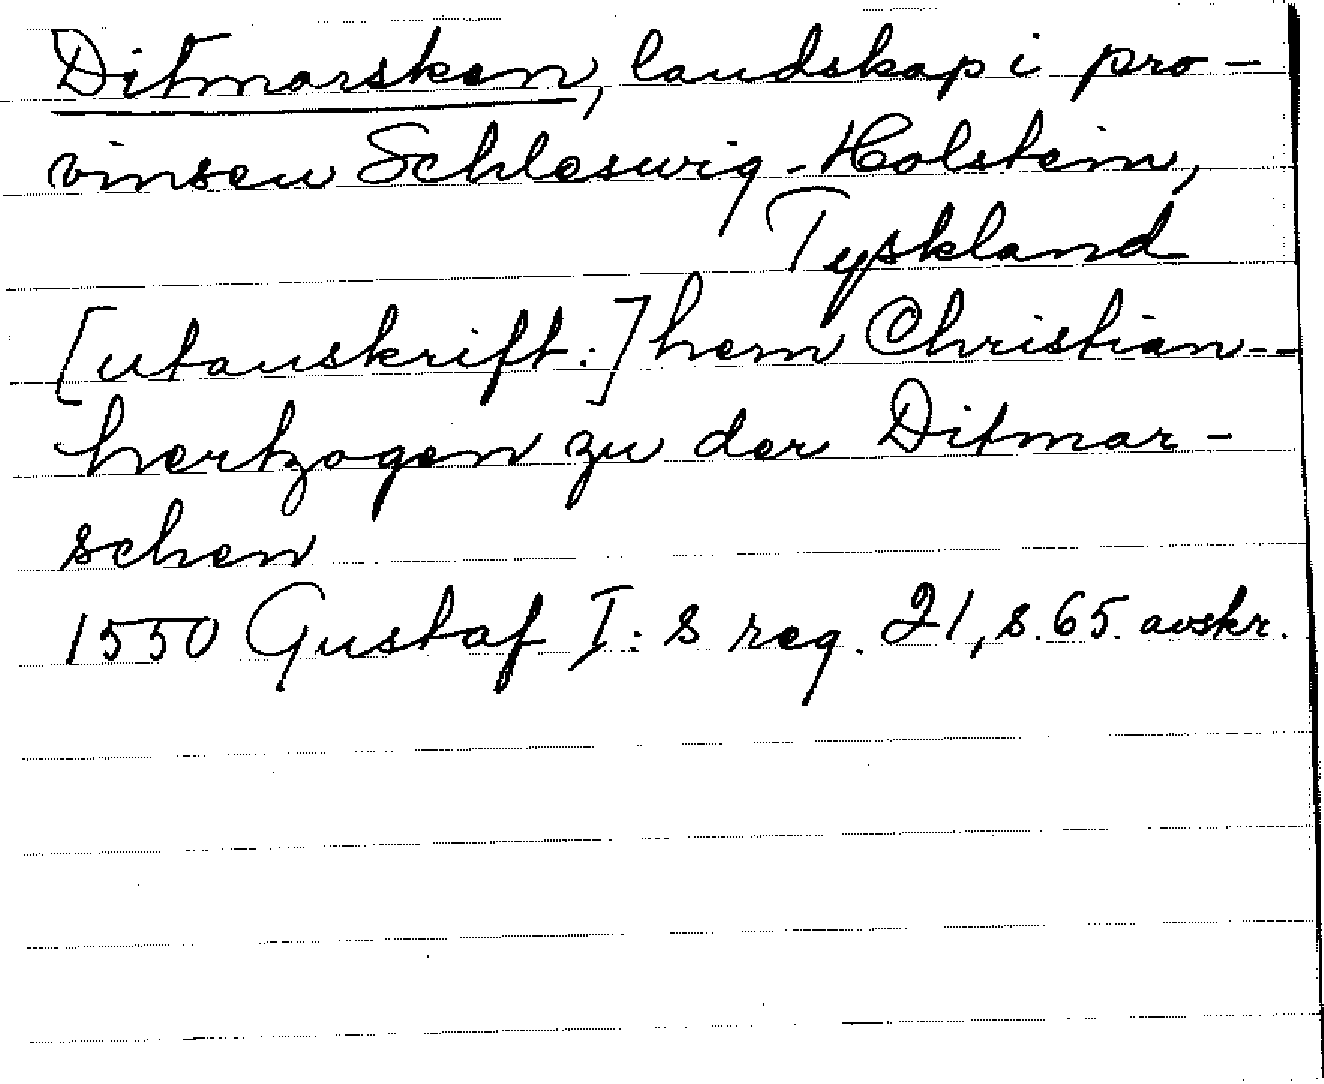 Ditmarsken, landskap i pro-
vinsen Schleswig-Holstein,
Tyskland
[utanskrift:] hern Christian--
hertzogen zu der Ditmar-
schen
1550 Gustaf I:s reg. 21, s. 65 avskr.